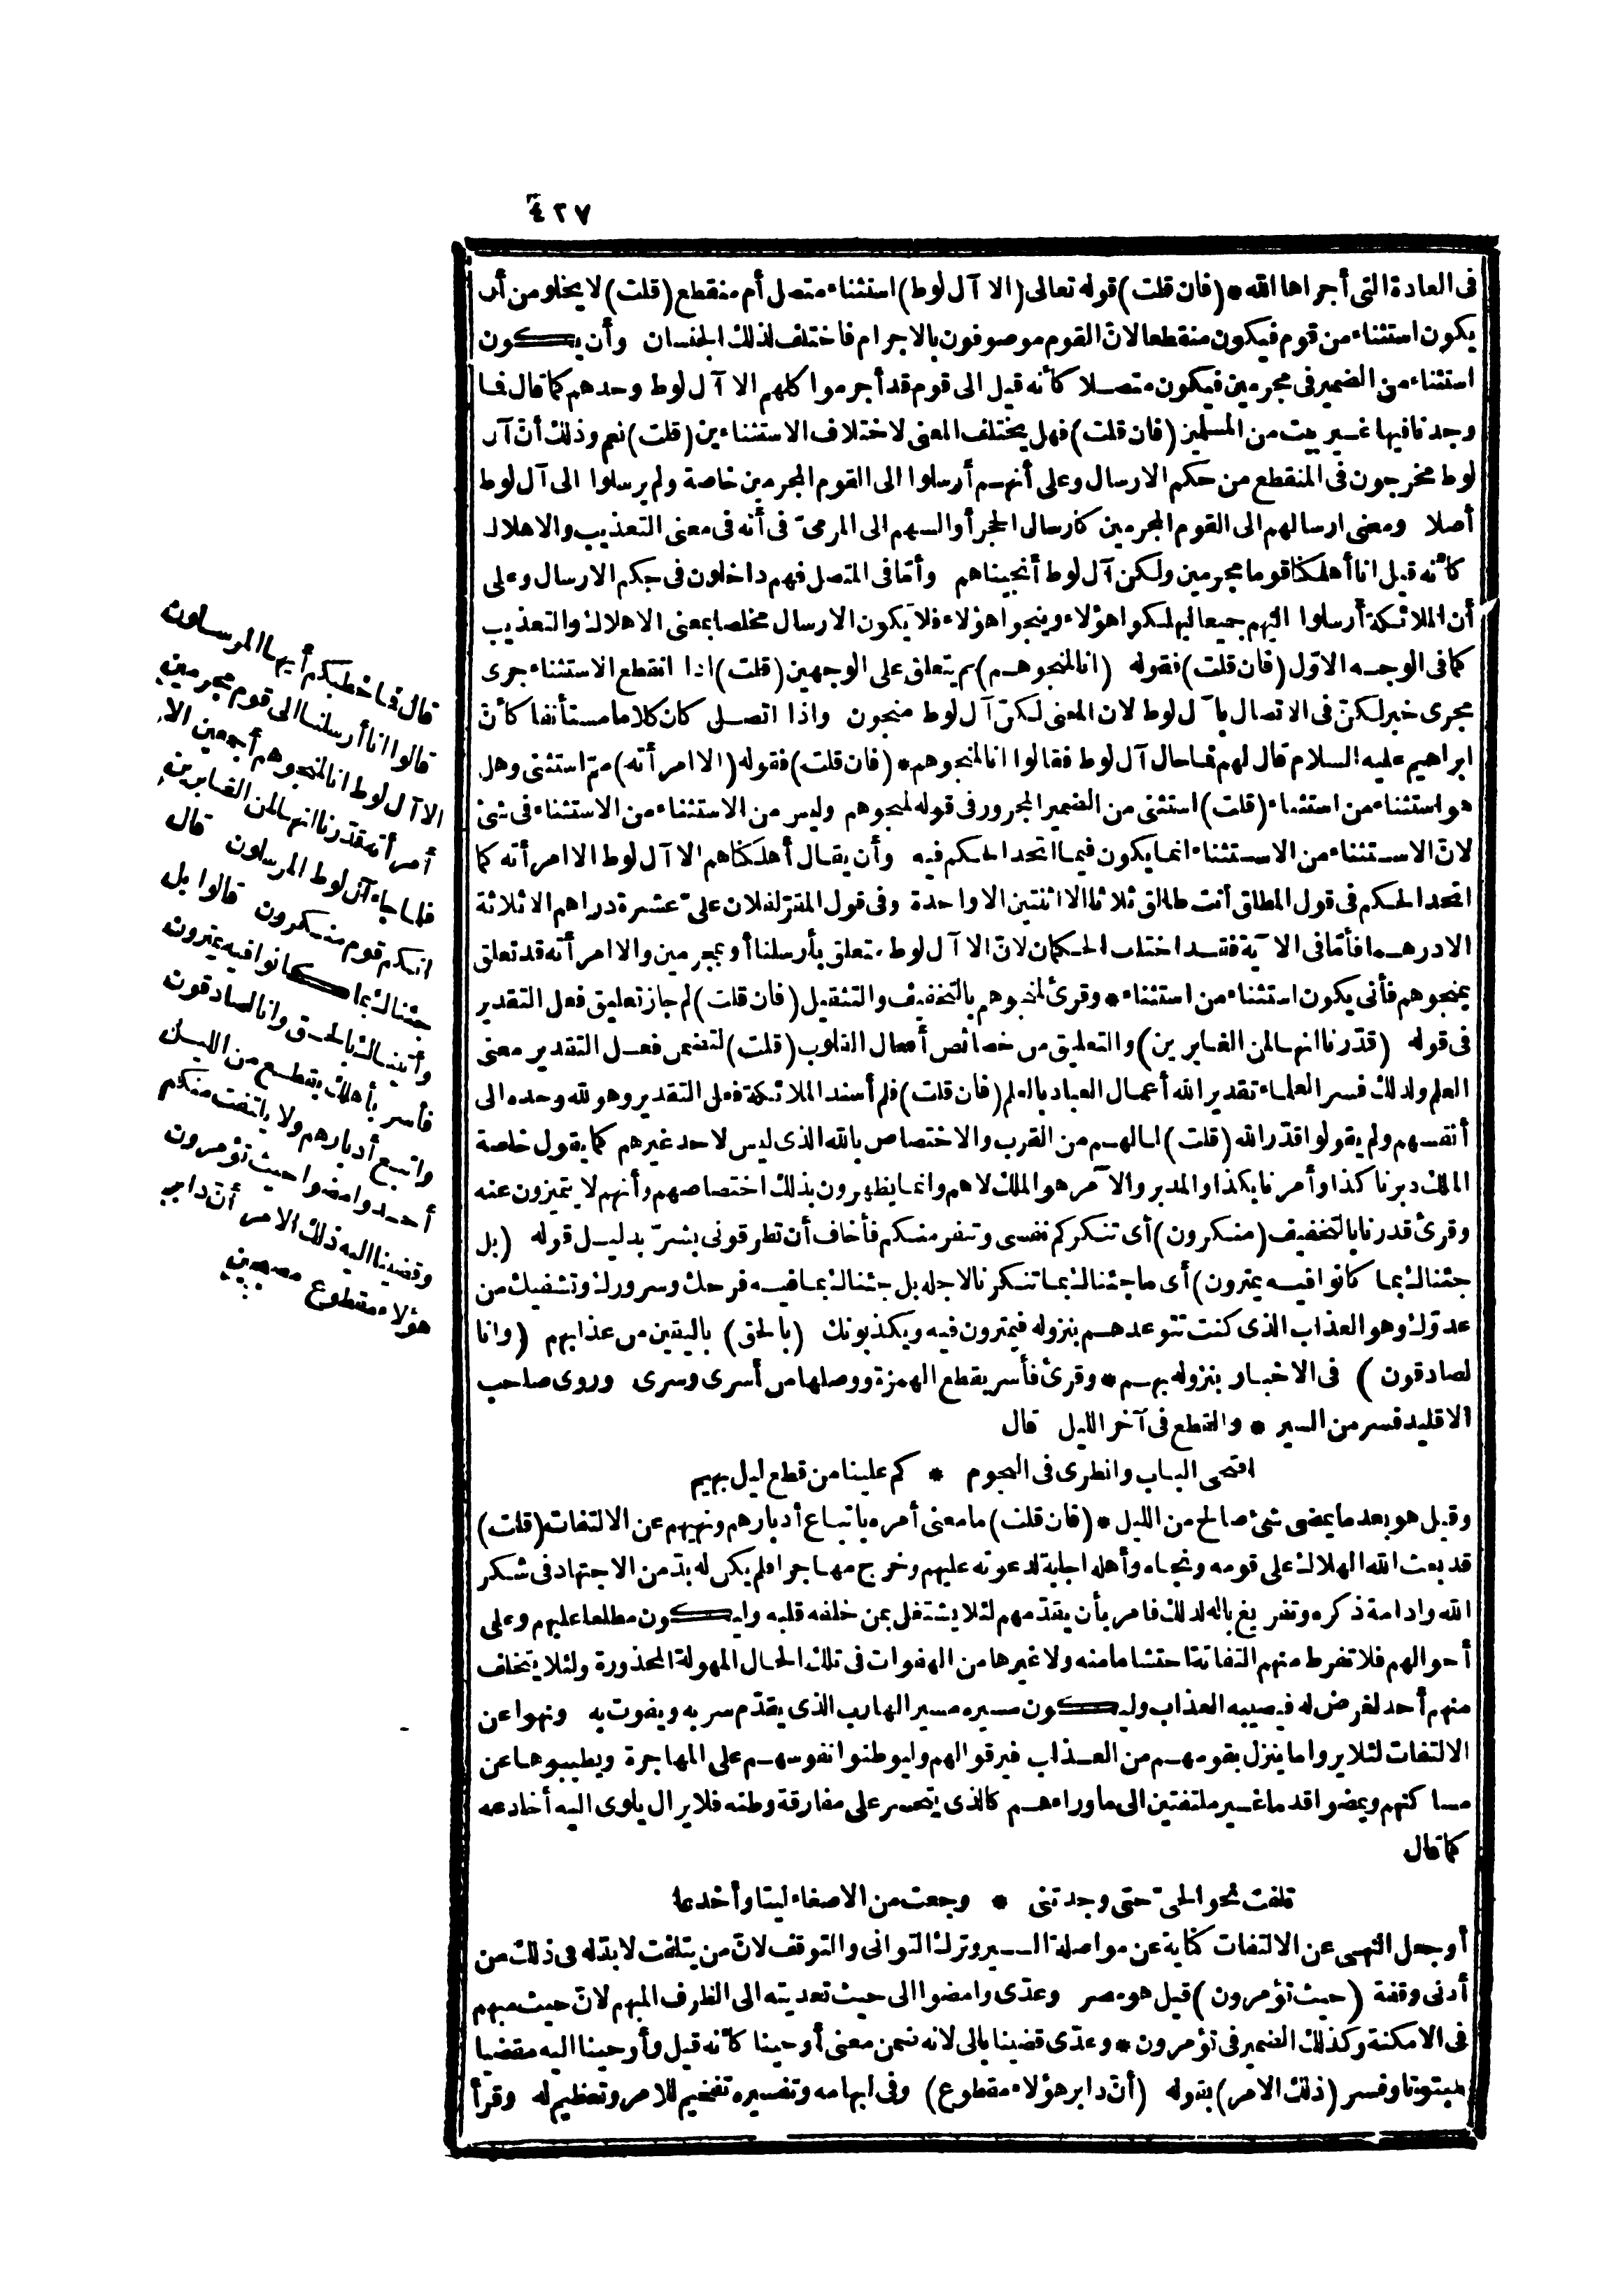 ٤٢٧
فى العادة التى أجراها الله * (فان قلت) قوله تعالى (الا آل لوط) استثناء متصل أم منقطع (قلت) لا يخلو من أن
يكون استثناء من قوم فيكون منقطعا لانّ القوم موصوفون بالاجرام فاختلف لذلك الجنسان وأن يكون
استثناء من الضمير فى مجرمين فيكون متصلا كأنه قيل الى قوم قد أجرموا كلهم الا آل لوط وحدهم كما قال فما
وجدنا فيها غير بيت من المسلمين (فان قلت) فهل يختلف المعنى لاختلاف الاستثناءين (قلت) نعم وذلك أنّ آل
لوط مخرجون فى المنقطع من حكم الارسال وعلى أنهم أرسلوا الى القوم المجرمين خاصة ولم يرسلوا الى آل لوط
أصلا ومعنى ارسالهم الى القوم المجرمين كارسال الحجر أو السهم الى المرمىّ فى أنه فى معنى التعذيب والاهلاك
كأنه قيل انا أهلكنا قوما مجرمين ولكن آل لوط أنجيناهم وأمّا فى المتصل فهم داخلون فى حكم الارسال وعلى
أن الملائكة أرسلوا اليهم جميعا ليهلكوا هؤلاء وينجوا هؤلاء فلا يكون الارسال مخلصا بمعنى الاهلاك والتعذيب
كما فى الوجه الاوّل (فان قلت) فقوله (انا لمنجوهم) بم يتعلق على الوجهين (قلت) اذا انقطع الاستثناء جرى
مجرى خبر لكنّ فى الاتصال بآل لوط لان المعنى لكنّ آل لوط منجون واذا اتصل كان كلاما مستأنفا كأنّ
ابراهيم عليه السلام قال لهم فما حال آل لوط فقالوا انا لمنجوهم * (فان قلت) فقوله (الا امرأته) ممّ استثنى وهل
هو استثناء من استثناء (قلت) استثنى من الضمير المجرور فى قوله لمنجوهم وليس من الاستثناء من الاستثناء فى شئ
لانّ الاستثناء من الاستثناء انما يكون فيما اتحد الحكم فيه وأن يقال أهلكناهم الا آل لوط الا امرأته كما
اتحد الحكم فى قول المطلق أنت طالق ثلاثا الا اثنتين الا واحدة وفى قول المقرّ لفلان علىّ عشرة دراهم الا ثلاثة
الا درهما فأمّا فى الآية فقد اختلف الحكمان لانّ الا آل لوط متعلق بأرسلنا أو بمجرمين والا امرأته قد تعلق
بمنجوهم فأنى يكون استثناء من استثناء * وقرئ لمنجوهم بالتخفيف والتثقيل (فان قلت) لم جاز تعليق فعل التقدير
فى قوله (قدّرنا انها لمن الغابرين) والتعليق من خصائص أفعال القلوب (قلت) لتضمن فعل التقدير معنى
العلم ولذلك فسر العلماء تقدير الله أعمال العباد بالعلم (فان قلت) فلم أسند الملائكة فعل التقدير وهو لله وحده الى
أنفسهم ولم يقولوا قدّر الله (قلت) لما لهم من القرب والاختصاص بالله الذى ليس لاحد غيرهم كما يقول خاصة
الملك دبرنا كذا وأمرنا بكذا والمدبر والآمر هو الملك لا هم وانما يظهرون بذلك اختصاصهم وأنهم لا يتميزون عنه
وقرئ قدرنا بالتخفيف (منكرون) أى تنكركم نفسى وتنفر منكم فأخاف أن تطرقونى بشرّ بدليل قوله (بل
جئناك بما كانوا فيه يمترون) أى ما جئناك بما تنكرنا لاجله بل جئناك بما فيه فرحك وسرورك وتشفيك من
عدوّك وهو العذاب الذى كنت تتوعدهم بنزوله فيمترون فيه ويكذبونك (بالحق) باليقين من عذابهم (وانا
لصادقون) فى الاخبار بنزوله بهم * وقرئ فأسر بقطع الهمزة ووصلها من أسرى وسرى وروى صاحب
الاقليد فسر من السير * والقطع فى آخر الليل قال
افتحى الباب وانظرى فى النجوم * كم علينا من قطع ليل بهيم
وقيل هو بعد ما يمضى شئ صالح من الليل * (فان قلت) ما معنى أمره باتباع أدبارهم ونهيهم عن الالتفات (قلت)
قد بعث الله الهلاك على قومه ونجاه وأهله اجابة لدعوته عليهم وخرج مهاجرا فلم يكن له بدّ من الاجتهاد فى شكر
الله وادامة ذكره وتفريغ باله لذلك فامر بأن يقدّمهم لئلا يشتغل بمن خلفه قلبه وليكون مطلعا عليهم وعلى
أحوالهم فلا تفرط منهم التفاتة احتشاما منه ولا غيرها من الهفوات فى تلك الحال المهولة المحذورة ولئلا يتخلف
منهم أحد لغرض له فيصيبه العذاب وليكون مسيره مسير الهارب الذى يقدّم سربه ويفوت به ونهوا عن
الالتفات لئلا يروا ما ينزل بقومهم من العذاب فيرقوا لهم وليوطنوا نفوسهم على المهاجرة ويطيبوها عن
مساكنهم ويمضوا قدما غير ملتفتين الى ما وراءهم كالذى يتحسر على مفارقة وطنه فلا يزال يلوى اليه أخادعه
كما قال
تلفت نحو الحىّ حتى وجدتنى * وجعت من الاصغاء ليتا وأخدعا
أو جعل النهى عن الالتفات كناية عن مواصلة السير وترك التوانى والتوقف لانّ من يتلفت لا بدّ له فى ذلك من
أدنى وقفة (حيث تؤمرون) قيل هو مصر وعدّى وامضوا الى حيث تعديته الى الظرف المبهم لانّ حيث مبهم
فى الامكنة وكذلك الضمير فى تؤمرون * وعدّى قضينا بالى لانه ضمن معنى أوحينا كأنه قيل وأوحينا اليه مقضيا
مبتوتا وفسر (ذلك الامر) بقوله (أنّ دابر هؤلاء مقطوع) وفى ابهامه وتفسيره تفخيم للامر وتعظيم له وقرأ
قال فما خطبكم أيها المرسلون
قالوا انا أرسلنا الى قوم مجرمين
الا آل لوط انا لمنجوهم أجمعين الا
امرأته قدّرنا انها لمن الغابرين
فلما جاء آل لوط المرسلون قال
انكم قوم منكرون قالوا بل
جئناك بما كانوا فيه يمترون
وأتيناك بالحق وانا لصادقون
فأسر بأهلك بقطع من الليل
واتبع أدبارهم ولا يلتفت منكم
أحد وامضوا حيث تؤمرون
وقضينا اليه ذلك الامر أنّ دابر
هؤلاء مقطوع مصبحين